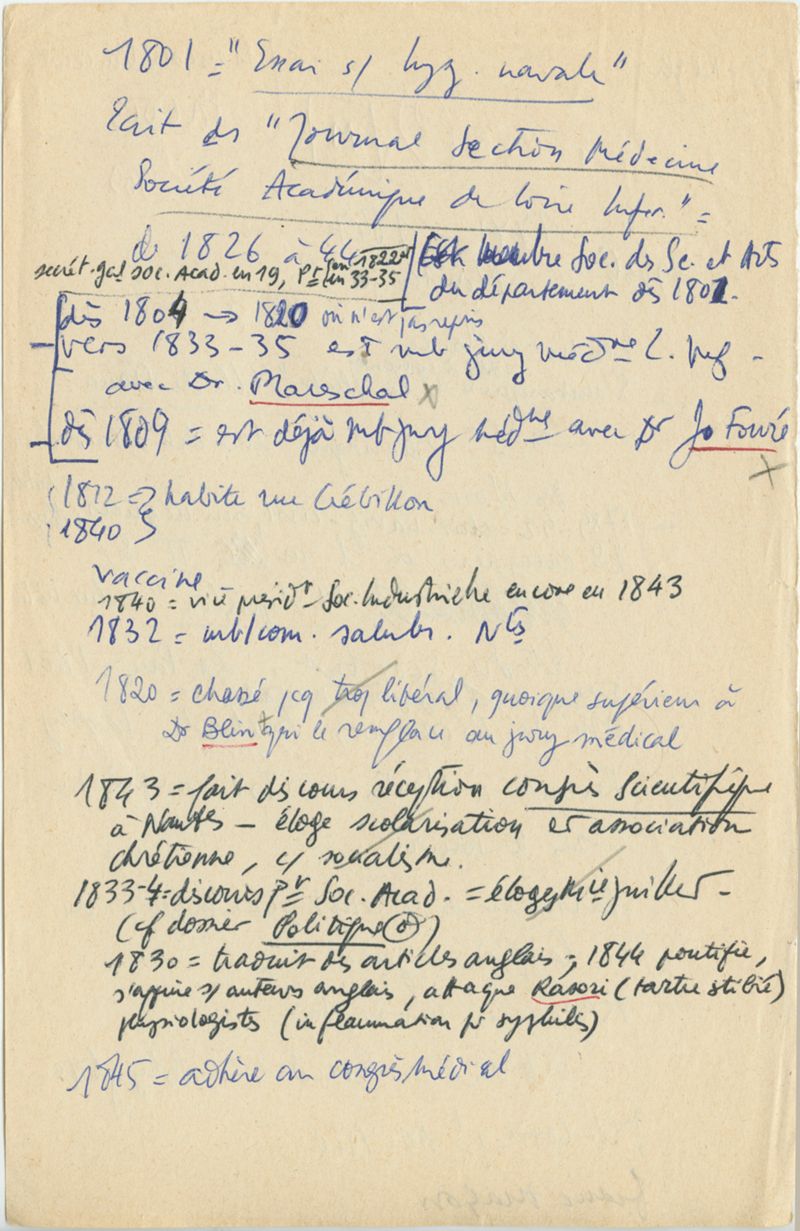 1801 = "Essai s/ hyg. navale"
Ecrit ds "Journal Section Médecine
Société Académique de Loire Infer." =
de 1826 à 44
membre Soc. des Sc. et Arts
secrét. gal soc. Acad. en 19, Pt en 1822 et en 33-35
du département dès 1801.
dès 1804 → 1820 où n'est pas repris
vers 1833-35 est mb jury médne L. Inf -
avec Dr. Mareschal x
dès 1809 = est déjà mb jury médne avec Dr Jo Fouré
x
1812 => habite rue Crébillon
1840
vaccine
1840 = vice présidt Soc. Industrielle encore en 1843
1832 = mb/com. salubr. Ntes
1820 = chassé pcq trop libéral, quoique supérieur à
Dr Blin qui le remplace au jury médical
1843 = fait discours réception congrès Scientifique
à Nantes - éloge scolarisation et association
chrétienne, c/ socialisme.
1833-4 = discours Pt Soc. Acad. = éloge Mie juillet -
(cf dossier Politique)
1830 = traduit des articles anglais ; 1844 pontifie,
s'appuie s/ auteurs anglais, attaque Rasori (tartre stibié)
physiologistes (inflammation pr syphilis)
1845 = adhère au congrès médical